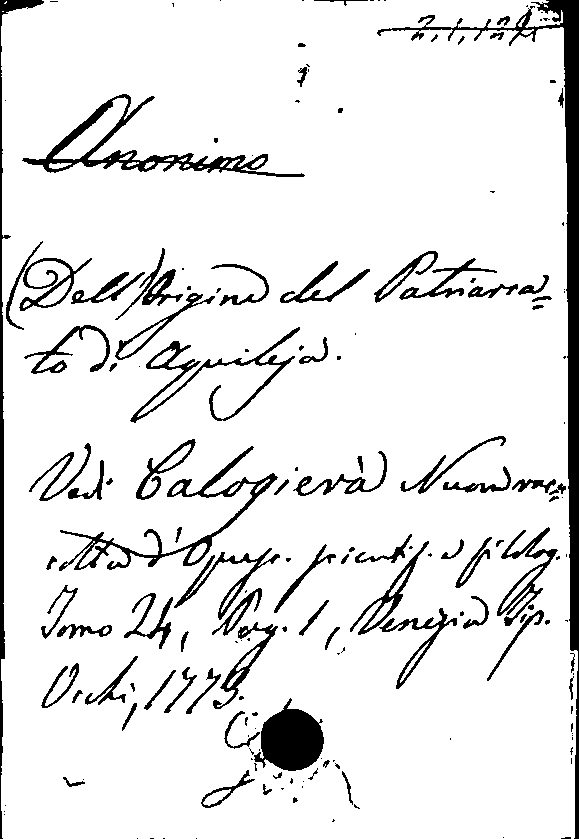 2.1.12
Anonimo
(Dell')Origine del Patriarca=
to di Aquileja.
Vedi Calogierà Nuova rac=
colta d'Opusc. scientif. e filolog.
Tomo 24, Pag. 1, Venezia Tip.
Occhi, 1773.